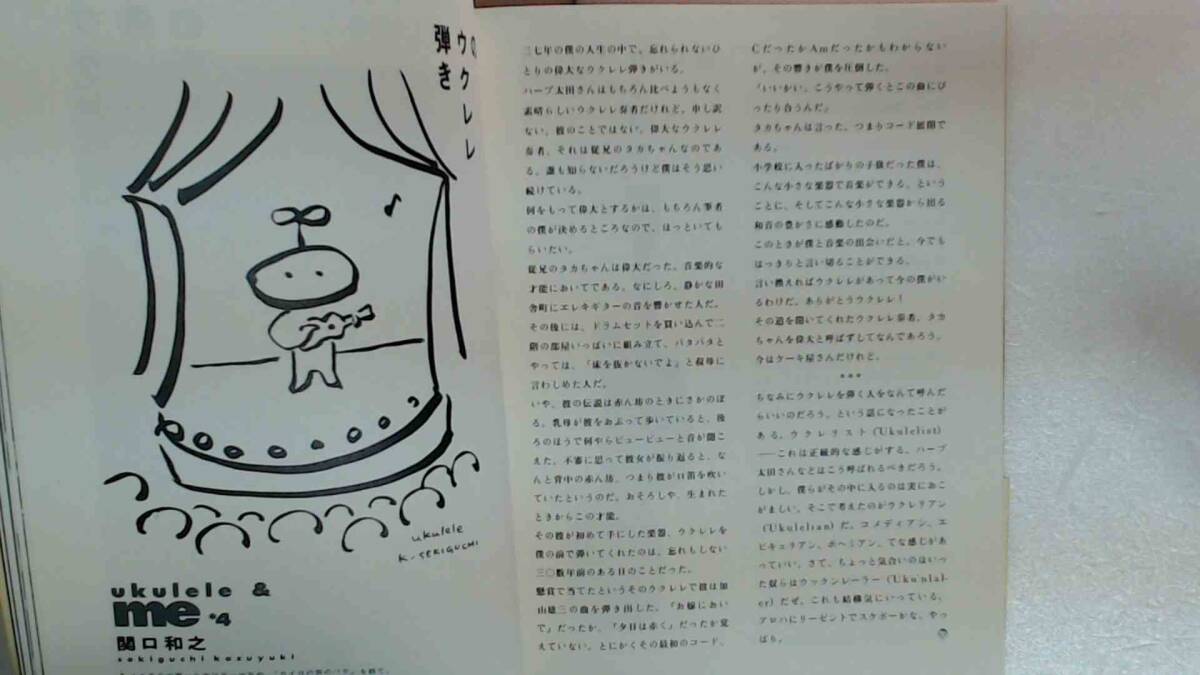 のウクレレ
弾き
ukulele
K・SEKIGUCHI
ukulele &
me *4
関口和之
sekiguchi kazuyuki
三七年の僕の人生の中で、忘れられないひ
とりの偉大なウクレレ弾きがいる。
ハーブ太田さんはもちろん比べようもなく
素晴らしいウクレレ奏者だけれど、申し訳
ない、彼のことではない。偉大なウクレレ
奏者、それは従兄のタカちゃんなのであ
る。誰も知らないだろうけど僕はそう思い
続けている。
何をもって偉大とするかは、もちろん筆者
の僕が決めるところなので、ほっといても
らいたい。
従兄のタカちゃんは偉大だった。音楽的な
才能においてである。なにしろ、静かな田
舎町にエレキギターの音を響かせた人だ。
その後には、ドラムセットを買い込んで二
階の部屋いっぱいに組み立て、バタバタと
やっては、「床を抜かないでよ」と叔母に
言わしめた人だ。
いや、彼の伝説は赤ん坊のときにさかのぼ
る。乳母が彼をおぶって歩いていると、後
ろのほうで何やらピューピューと音が聞こ
えた。不審に思って彼女が振り返ると、な
んと背中の赤ん坊、つまり彼が口笛を吹い
ていたというのだ。おそろしや、生まれた
ときからこの才能。
その彼が初めて手にした楽器、ウクレレを
僕の前で弾いてくれたのは、忘れもしない
三〇数年前のある日のことだった。
懸賞で当てたというそのウクレレで彼は加
山雄三の曲を弾き出した。「お嫁においで
で」だったか、「夕日は赤く」だったか覚
えていない。とにかくその最初のコード、
CだったかAmだったかもわからない
が、その響きが僕を圧倒した。
「いいかい、こうやって弾くとこの曲にぴ
ったり合うんだ」
タカちゃんは言った。つまりコード展開で
ある。
小学校に入ったばかりの子供だった僕は、
こんな小さな楽器で音楽ができる、という
ことに、そしてこんな小さな楽器から出る
和音の豊かさに感動したのだ。
このときが僕と音楽の出会いだと、今でも
はっきりと言い切ることができる。
言い換えればウクレレがあって今の僕がい
るわけだ。ありがとうウクレレ！
その道を開いてくれたウクレレ奏者、タカ
ちゃんを偉大と呼ばずしてなんであろう。
今はケーキ屋さんだけれど。
***
ちなみにウクレレを弾く人をなんて呼んだ
らいいのだろう、という話になったことが
ある。ウクレリスト（Ukulelist）
――これは正統的な感じがする。ハーブ
太田さんなどはこう呼ばれるべきだろう。
しかし、僕らがその中に入るのは実におこ
がましい。そこで考えたのがウクレリアン
（Ukulelian）だ。コメディアン、エ
ピキュリアン、ボヘミアン、てな感じがあ
っていい。さて、ちょっと気合いのはいっ
た奴らはウックンレーラー（Uku'nlal-
er）だぜ。これも結構気にいっている。
アロハにリーゼントでスケボーかな、やっ
ぱり。